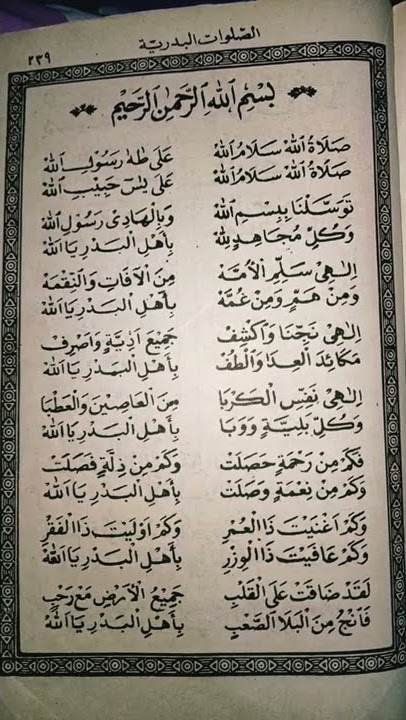 الصّلوات البدريّة
٢٣٩
بِسْمِ اللهِ الرَّحْمٰنِ الرَّحِيْمِ
صَلَاةُ اللهْ سَلَامُ اللهْ عَلَى طٰهَ رَسُوْلِ اللهْ
صَلَاةُ اللهْ سَلَامُ اللهْ عَلَى يٰسٓ حَبِيْبِ اللهْ
تَوَسَّلْنَا بِبِسْمِ اللهْ وَبِالْهَادِىْ رَسُوْلِ اللهْ
وَكُلِّ مُجَاهِدٍ لِلّٰهْ بِأَهْلِ الْبَدْرِ يَا اَللهْ
اِلٰهِىْ سَلِّمِ الْاُمَّةْ مِنَ الْآفَاتِ وَالنِّقْمَةْ
وَمِنْ هَمٍّ وَمِنْ غُمَّةْ بِأَهْلِ الْبَدْرِ يَا اَللهْ
اِلٰهِىْ نَجِّنَا وَاكْشِفْ جَمِيْعَ اَذِيَّةٍ وَاصْرِفْ
مَكَائِدَ الْعِدَا وَالْطُفْ بِأَهْلِ الْبَدْرِ يَا اَللهْ
اِلٰهِىْ نَفِّسِ الْكَرْبَا مِنَ الْعَاصِيْنَ وَالْعَطْبَا
وَكُلِّ بَلِيَّةٍ وَوَبَا بِأَهْلِ الْبَدْرِ يَا اَللهْ
فَكَمْ مِنْ رَحْمَةٍ حَصَلَتْ وَكَمْ مِنْ ذِلَّةٍ فَصَلَتْ
وَكَمْ مِنْ نِعْمَةٍ وَصَلَتْ بِأَهْلِ الْبَدْرِ يَا اَللهْ
وَكَمْ اَغْنَيْتَ ذَا الْعُمْرِ وَكَمْ اَوْلَيْتَ ذَا الْفَقْرِ
وَكَمْ عَافَيْتَ ذَا الْوِزْرِ بِأَهْلِ الْبَدْرِ يَا اَللهْ
لَقَدْ ضَاقَتْ عَلَى الْقَلْبِ جَمِيْعُ الْاَرْضِ مَعْ رَحْبِ
فَانْجُ مِنَ الْبَلَا الصَّعْبِ بِأَهْلِ الْبَدْرِ يَا اَللهْ